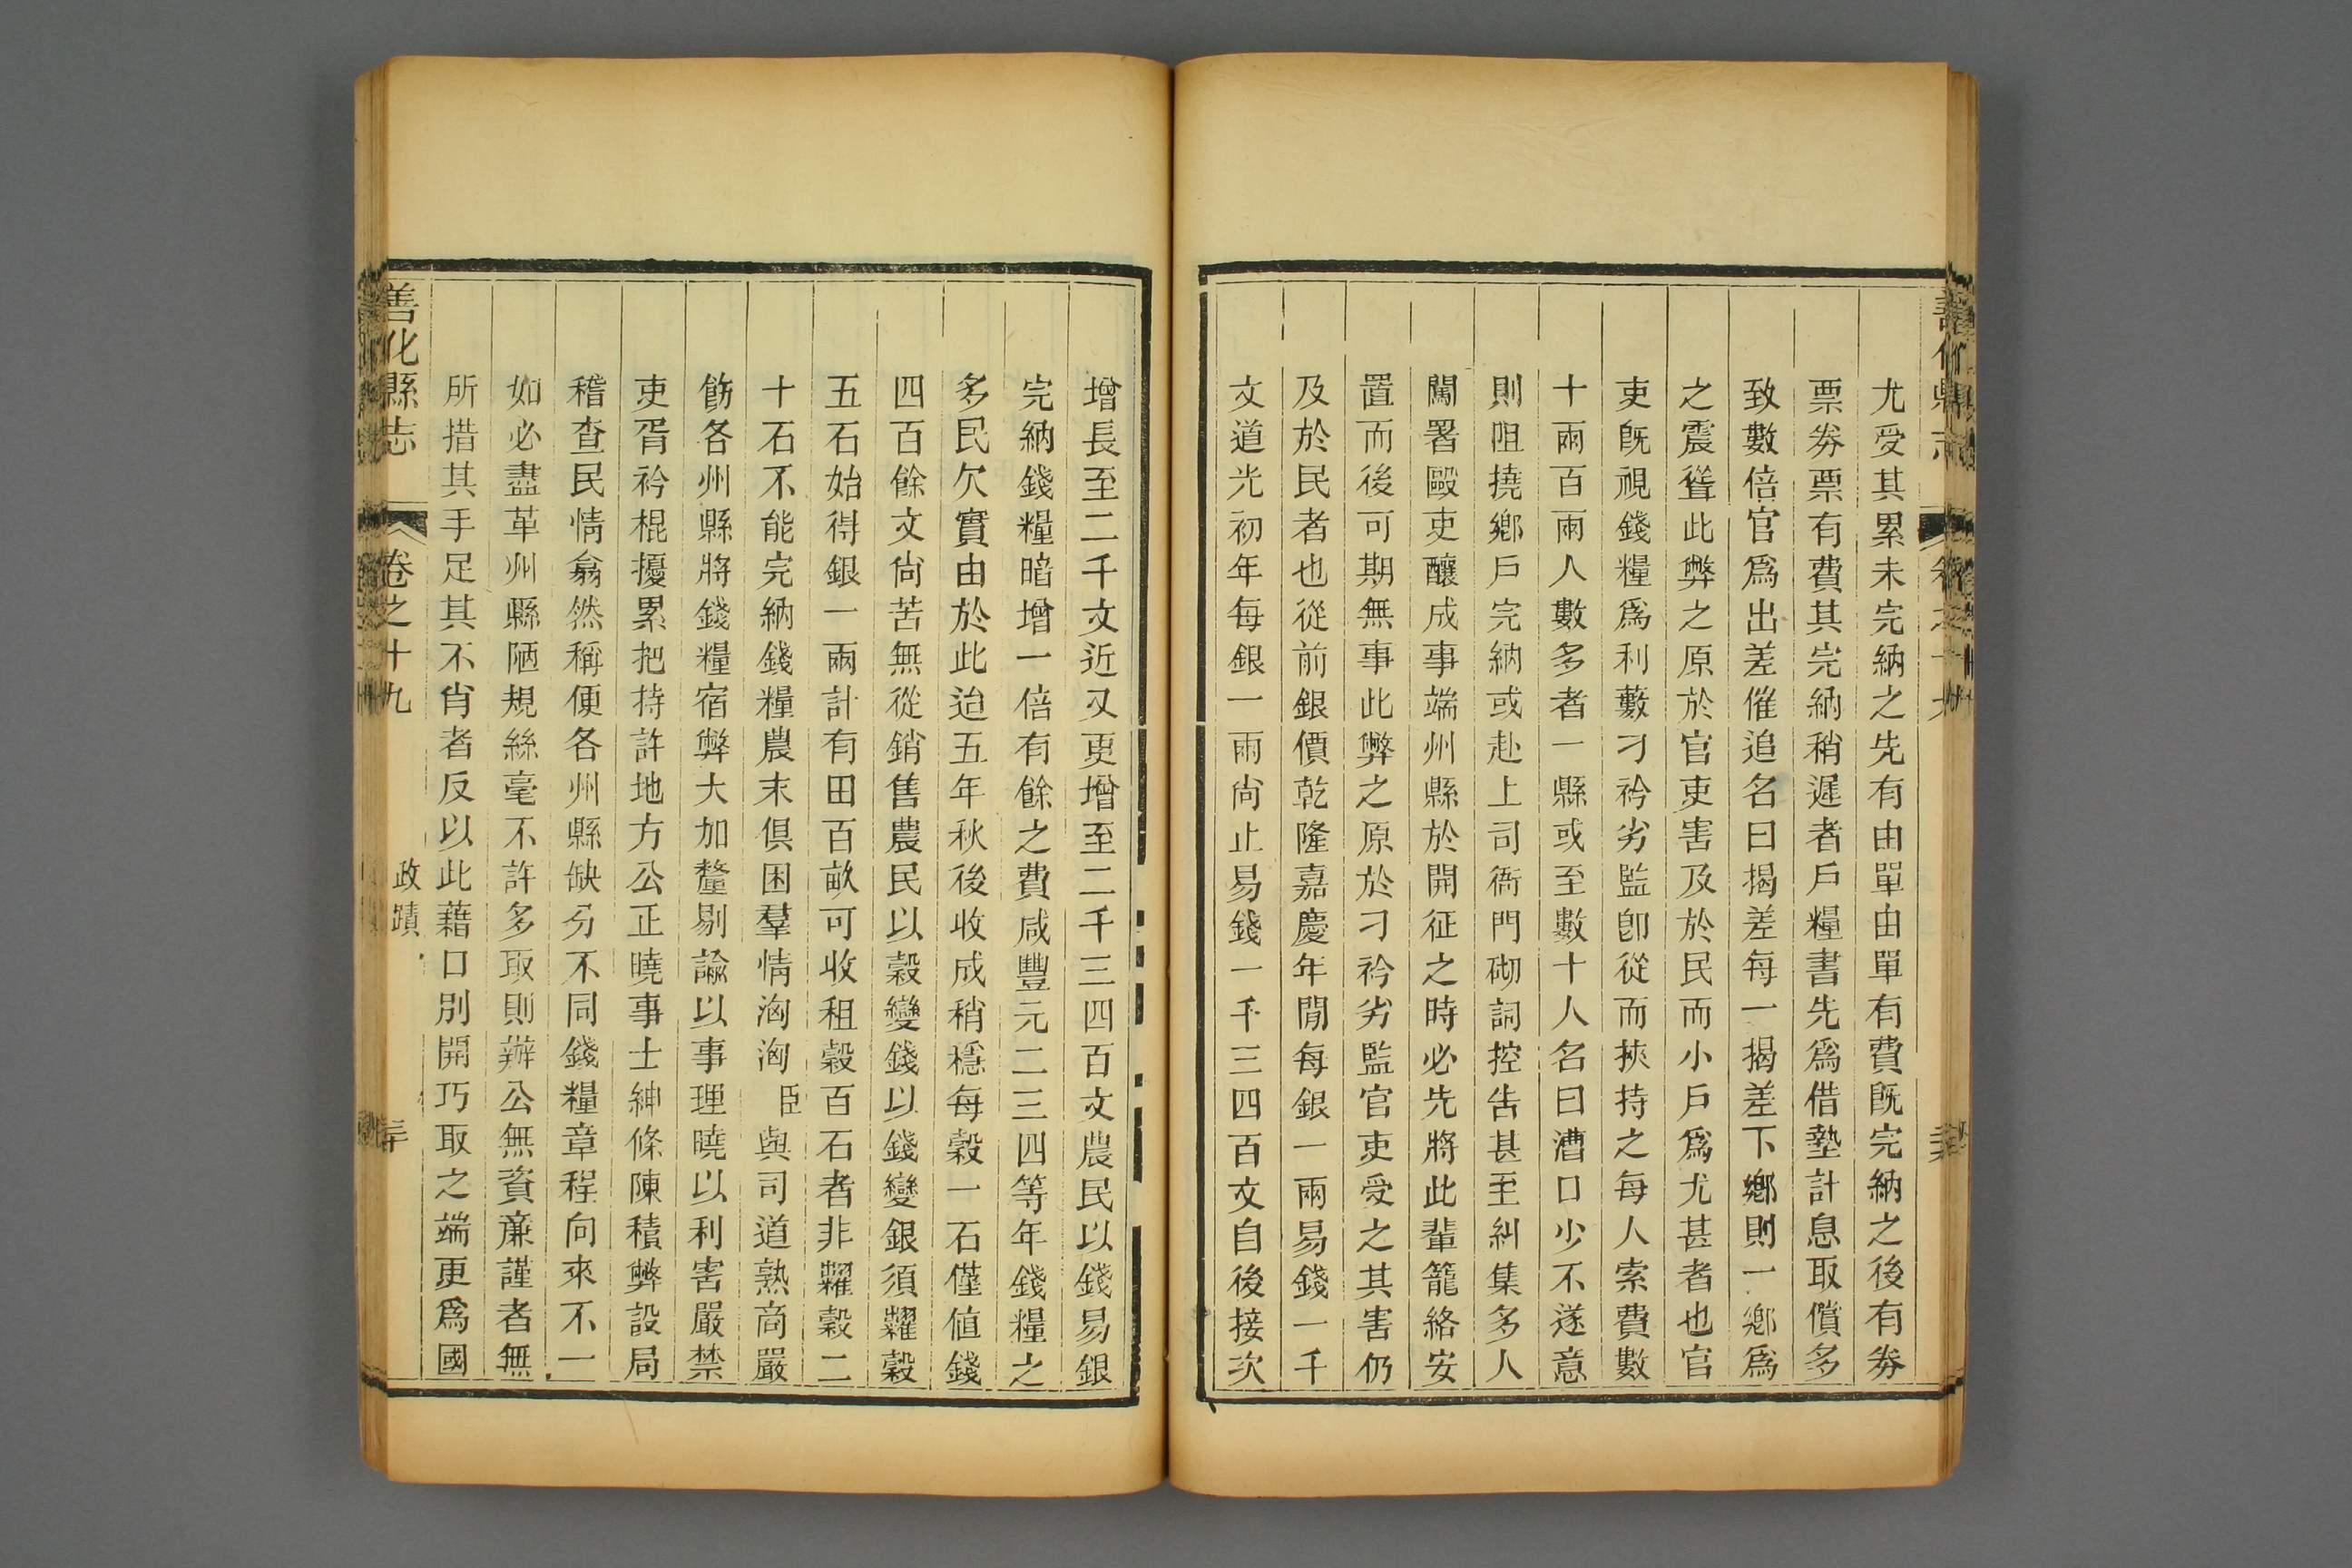 尤受其累未完納之先有由單由單有費既完納之後有券
票券票有費其完納稍遲者戶糧書先爲借墊計息取償多
致數倍官爲出差催追名曰揭差每一揭差下鄉則一鄉爲
之震聳此弊之原於官吏害及於民而小戶爲尤甚者也官
吏既視錢糧爲利藪刁衿劣監卽從而挾持之每人索費數
十兩百兩人數多者一縣或至數十人名曰漕口少不遂意
則阻撓鄉戶完納或赴上司衙門砌詞控告甚至糾集多人
闖署毆吏釀成事端州縣於開征之時必先將此輩籠絡安
置而後可期無事此弊之原於刁衿劣監官吏受之其害仍
及於民者也從前銀價乾隆嘉慶年閒每銀一兩易錢一千
文道光初年每銀一兩尙止易錢一千三四百文自後接次
增長至二千文近又更增至二千三四百文農民以錢易銀
完納錢糧暗增一倍有餘之費咸豐元二三四等年錢糧之
多民欠實由於此迨五年秋後收成稍穩每穀一石僅值錢
四百餘文尙苦無從銷售農民以穀變錢以錢變銀須糶穀
五石始得銀一兩計有田百畝可收租穀百石者非糶穀二
十石不能完納錢糧農末俱困羣情洶洶臣與司道熟商嚴
飭各州縣將錢糧宿弊大加釐剔諭以事理曉以利害嚴禁
吏胥衿棍擾累把持許地方公正曉事士紳條陳積弊設局
稽查民情翕然稱便各州縣缺分不同錢糧章程向來不一
如必盡革州縣陋規絲毫不許多取則辦公無資廉謹者無
所措其手足其不肖者反以此藉口別開巧取之端更爲國
善化縣志
卷之十九
政蹟
三十